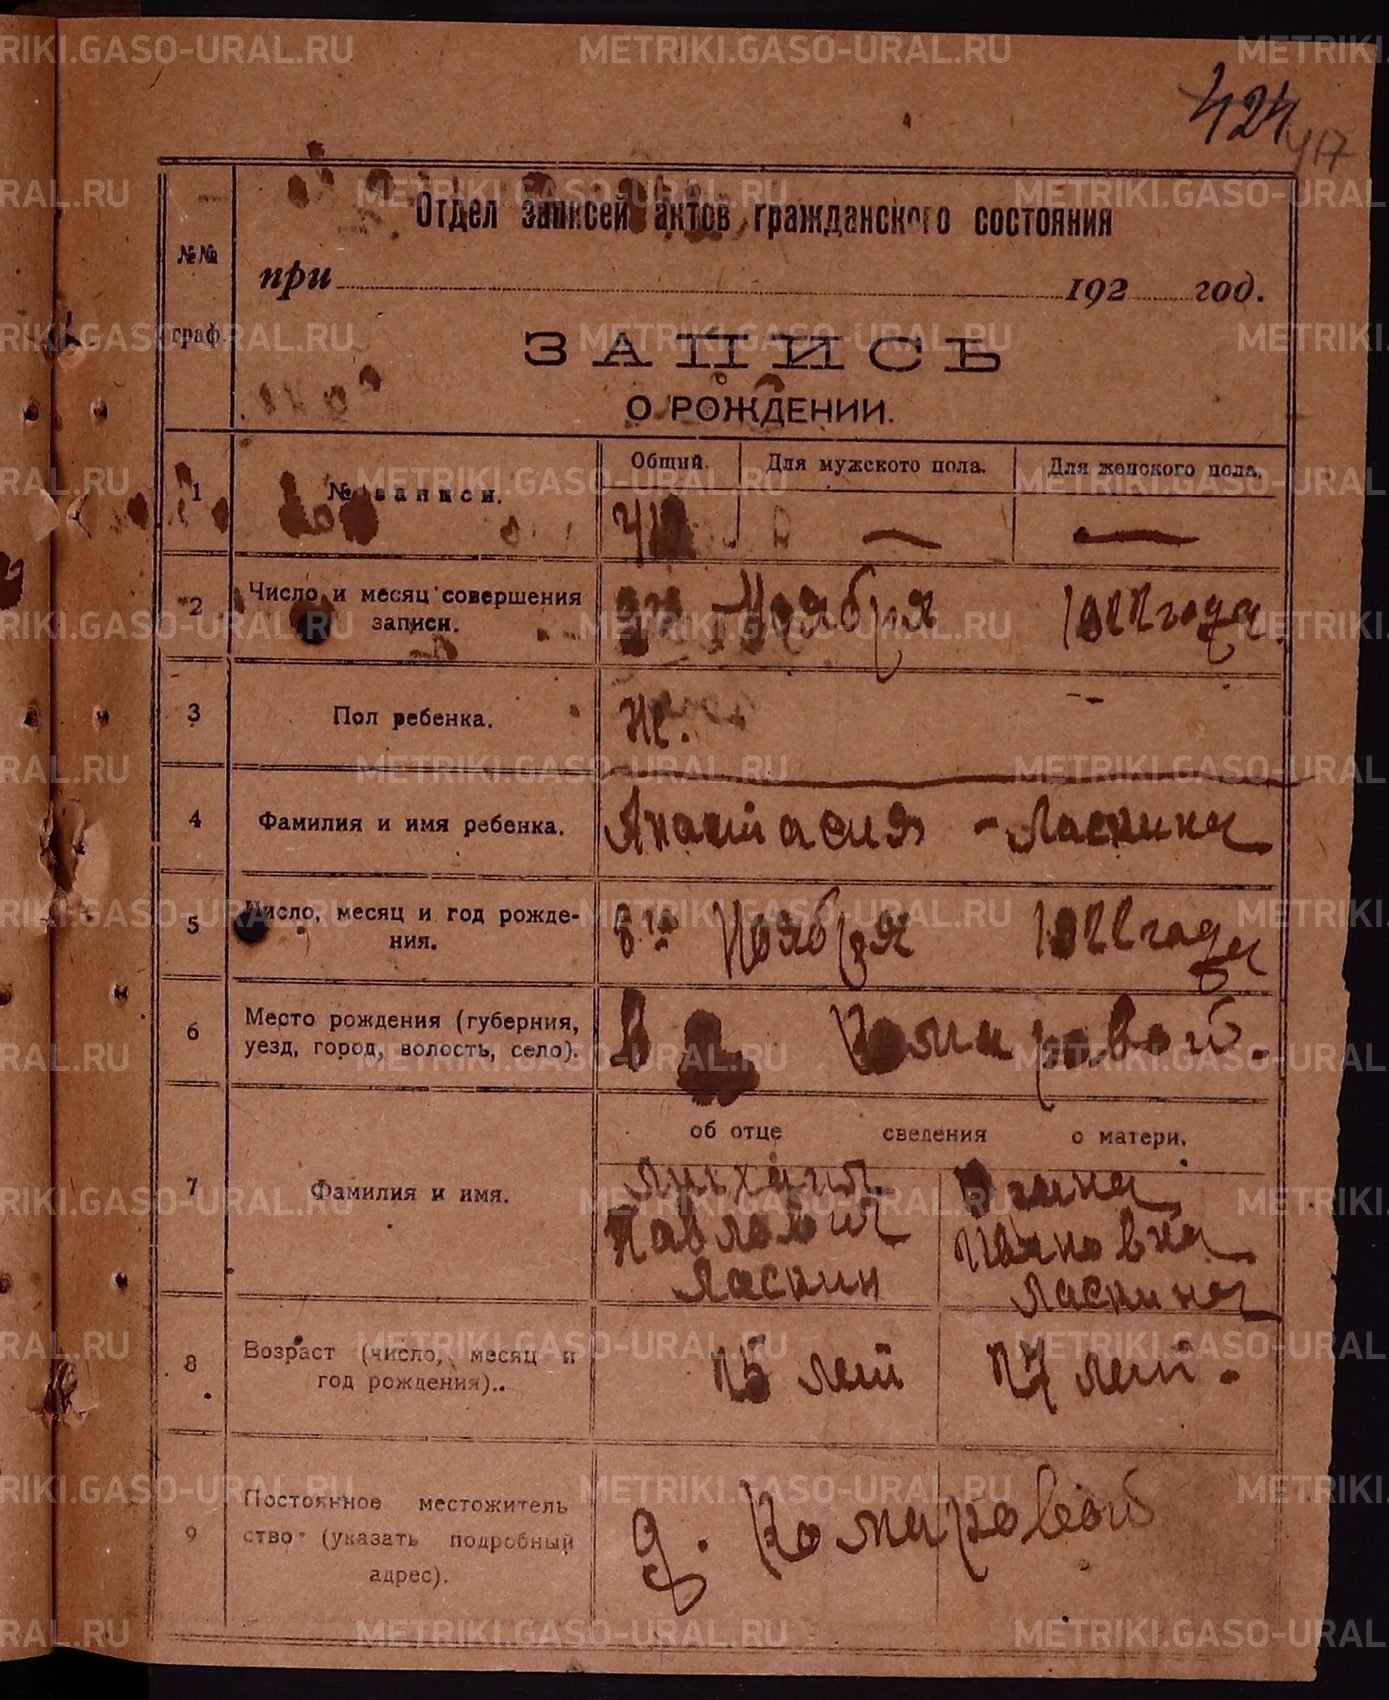 METRIKI.GASO-URAL.RU
424
417
№№ граф.
Отдел записей актов гражданского состояния
при 192 год.
ЗАПИСЬ
О РОЖДЕНИИ.
1
№ записи.
Общий. Для мужского пола. Для женского пола.
2
Число и месяц совершения
записи.
Ноября 1922 года.
3
Пол ребенка.
4
Фамилия и имя ребенка.
Анастасия - Ласкина
5
Число, месяц и год рожде-
ния.
8го Ноября 1922 года
6
Место рождения (губерния,
уезд, город, волость, село).
В Комаровой.
об отце сведения о матери.
7
Фамилия и имя.
Михаил
Павлович Ивановна
Ласкин Ласкина
8
Возраст (число, месяц и
год рождения)..
лет лет.
9
Постоянное местожитель
ство (указать подробный
адрес).
д. Комаровой